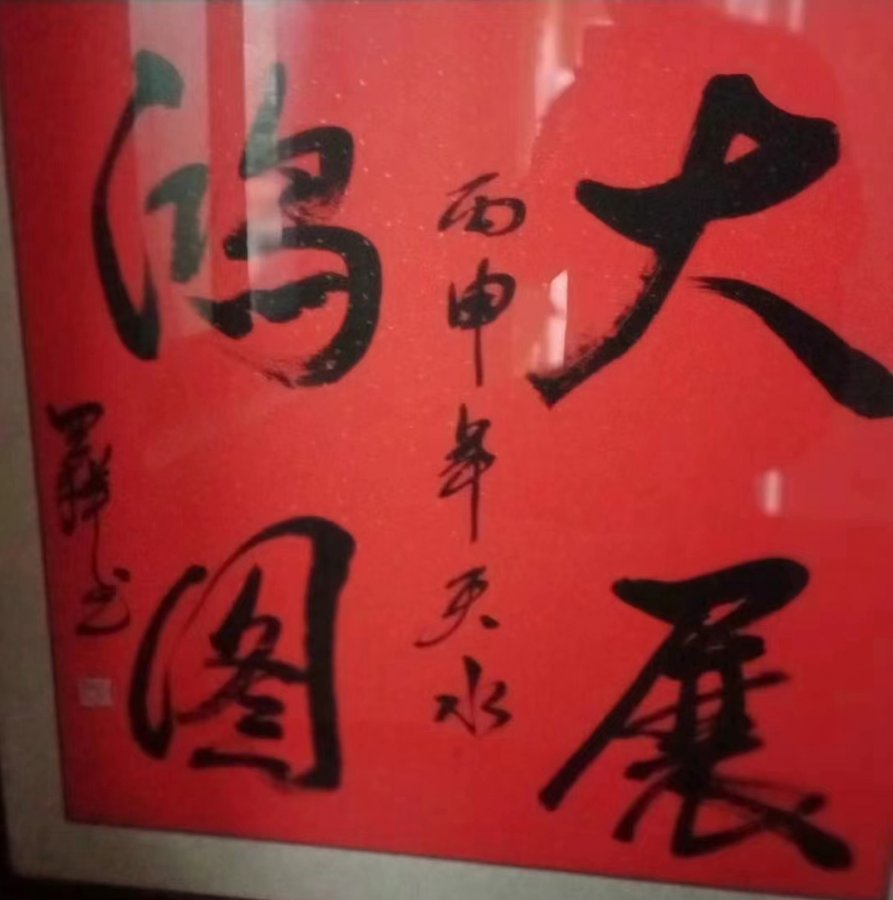 大展
鸿图
丙申年天水
书